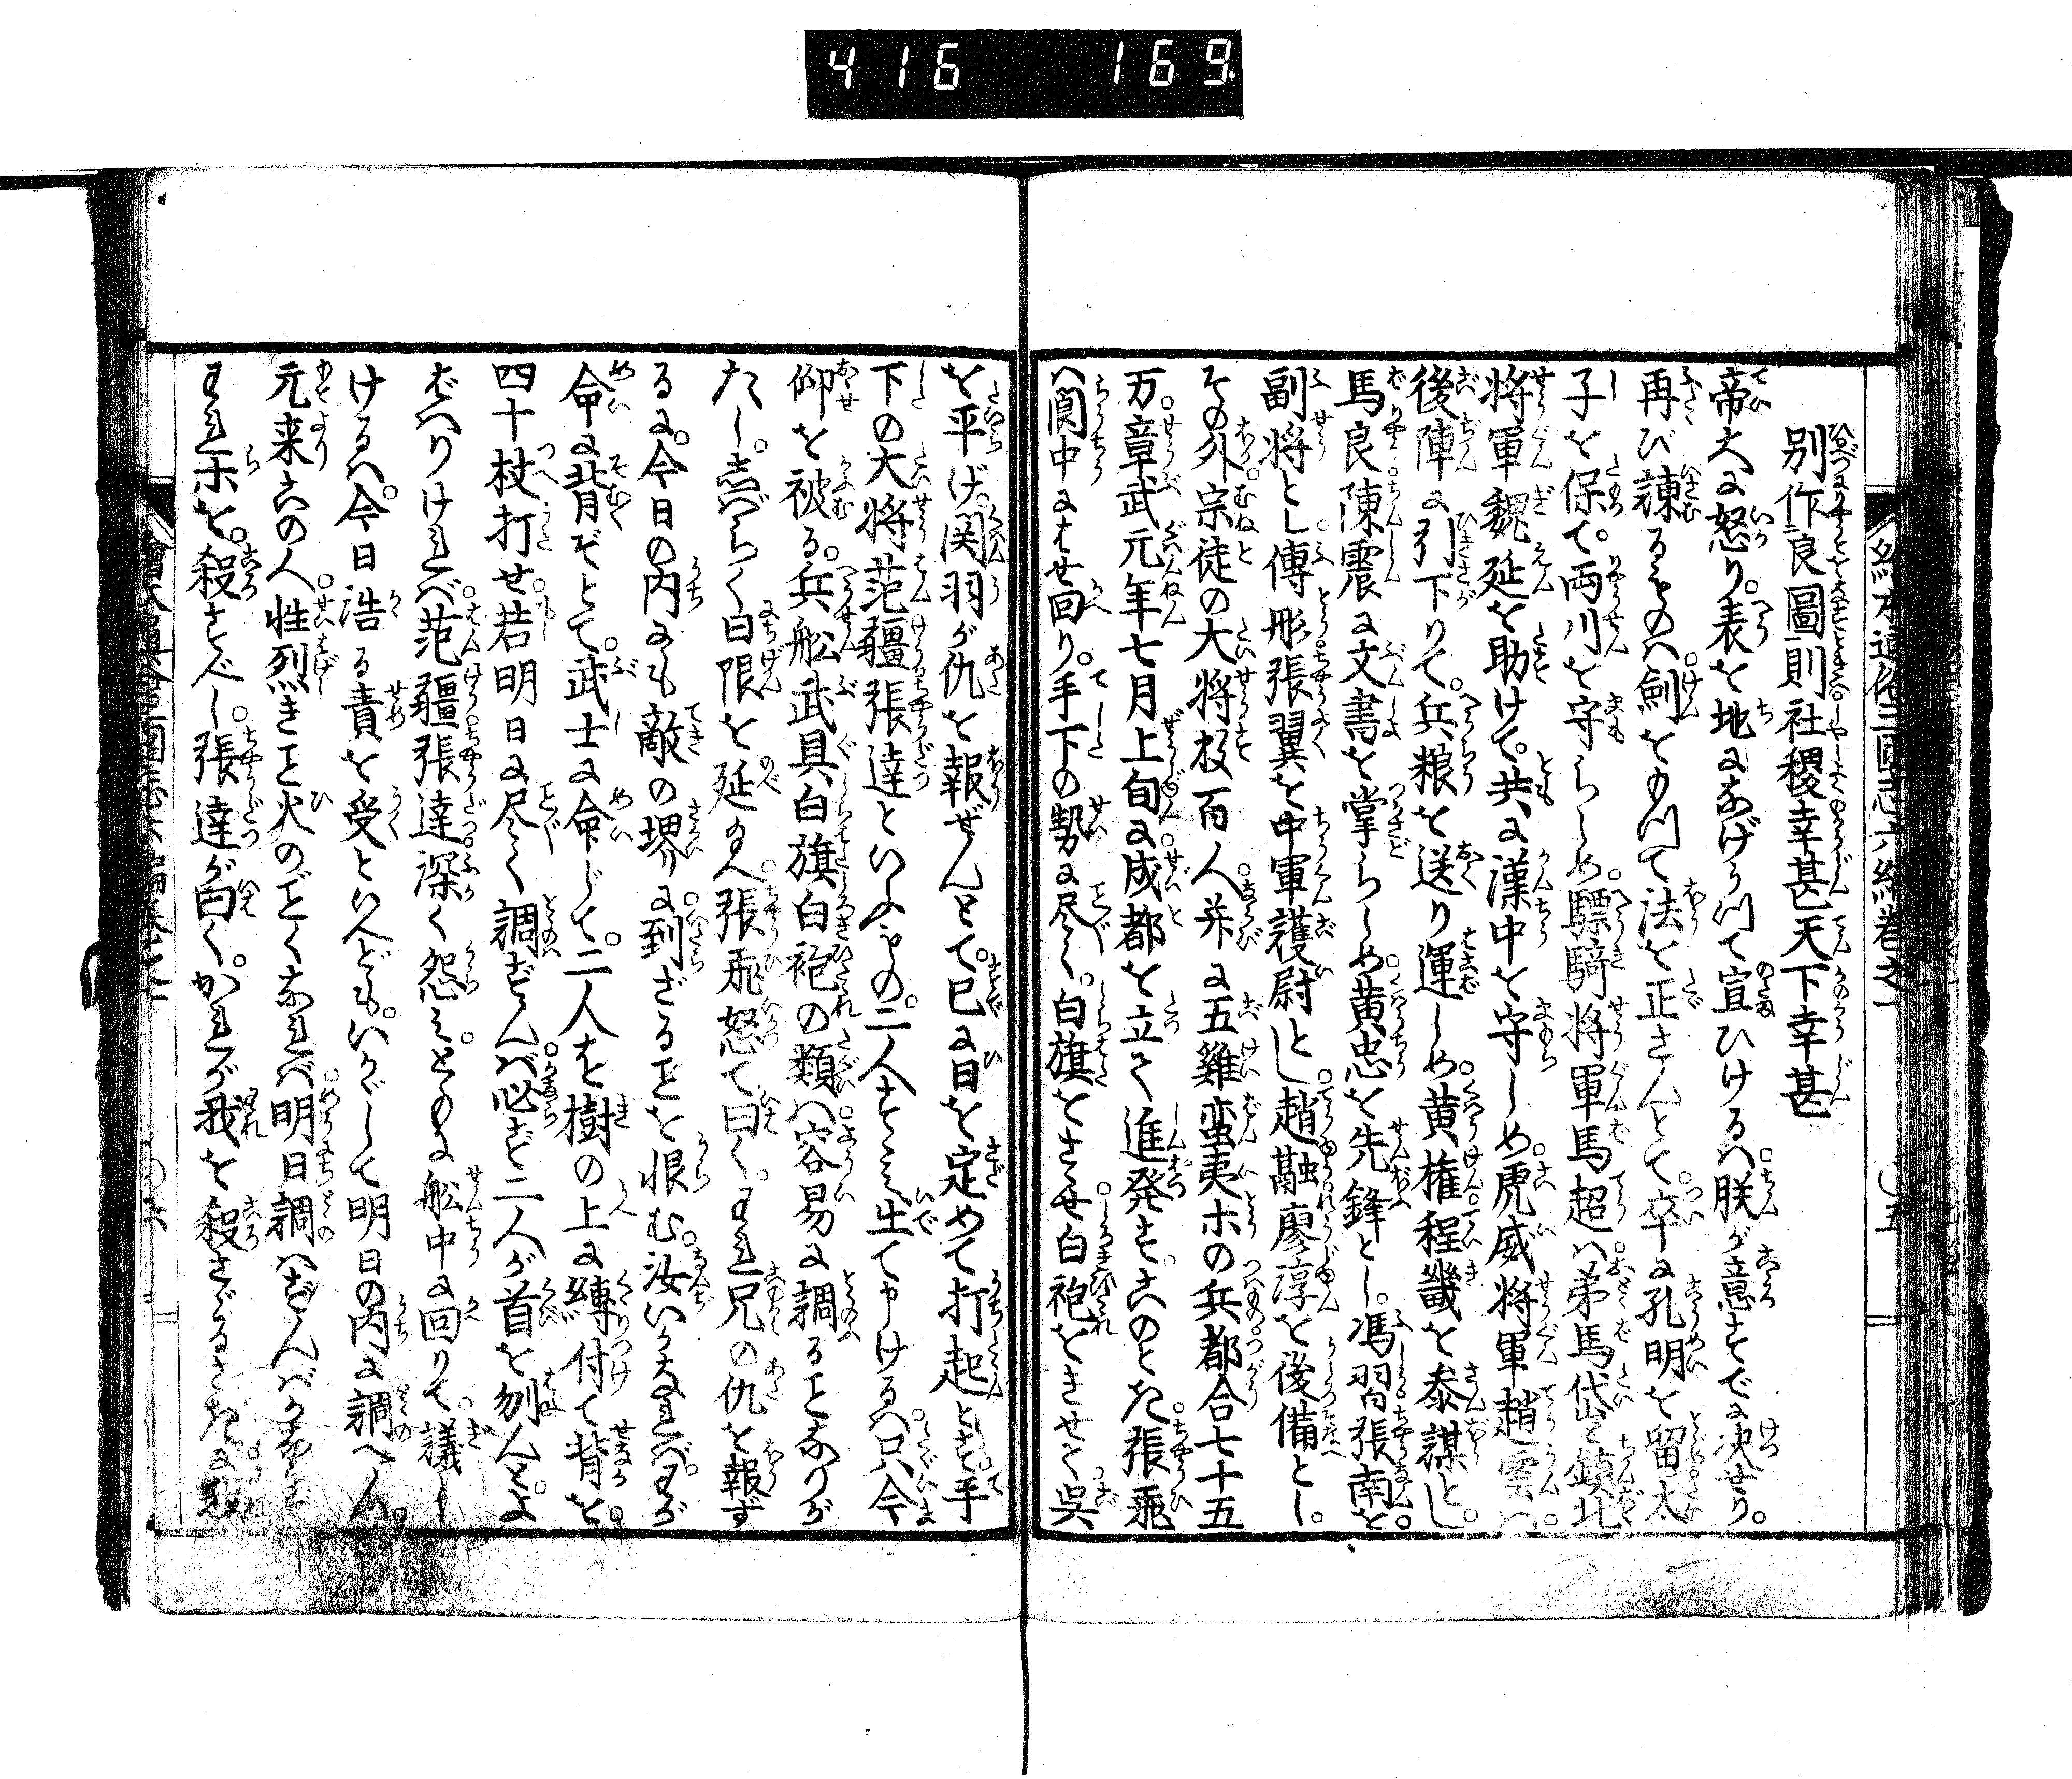 416 169
繪本通俗三國志六編巻之一
別作良圖則社稷幸甚天下幸甚
帝大に怒り。表を地になげうつて宣ひけるハ。朕が意すでに决せり。
再び諌るものハ。剣をもつて法を正さんとて。卒に孔明を留太
子を保て。両川を守らしめ。驃騎将軍馬超ハ。弟馬岱と鎮北
将軍魏延を助けて。共に漢中を守しめ。虎威将軍趙雲ハ。
後陣に引下りて。兵粮を送り運しめ。黄権。程畿を参謀とし。
馬良。陳震に文書を掌らしめ。黄忠を先鋒とし。馮習。張南を。
副将とし。傅彤。張翼を中軍護尉とし。趙融廖淳を後備とし。
その外。宗徒の大将校百人。并に五谿蛮夷ホの兵。都合七十五
万。章武元年七月上旬に。成都を立て進発す。このとき。張飛
ハ閬中にはせ回り。手下の勢に尽く。白旗をさゝせ。白袍をきせて。呉
を平げ。関羽が仇を報ぜんとて。已に日を定めて打起んとす。手
下の大将范疆。張達といふもの。二人すゝみ出て申けるハ。只今
仰を被る。兵舩武具白旗白袍の類ハ。容易に調ることなりが
たし。志ばらく日限を延玉へ。張飛怒て曰く。われ兄の仇を報ず
るに。今日の内にも敵の堺に。到ざることを恨む。汝いかなれバ。わが
命に背ぞとて。武士に命じて。二人を樹の上に縛付て。背を。
四十杖打せ。若明日に尽く調ずんバ。必ず二人が首を刎んとよ
ばハりけれバ。范疆。張達。深く怨み。ともに舩中に回りて。議し
けるハ。今日浩る責を受といへども。いかでして明日の内に調へん。
元来この人。性烈きこと火のごとくなれバ。明日調ハずんバかならず
われホを。殺すべし。張達が曰く。かれが我を殺さざるさきに